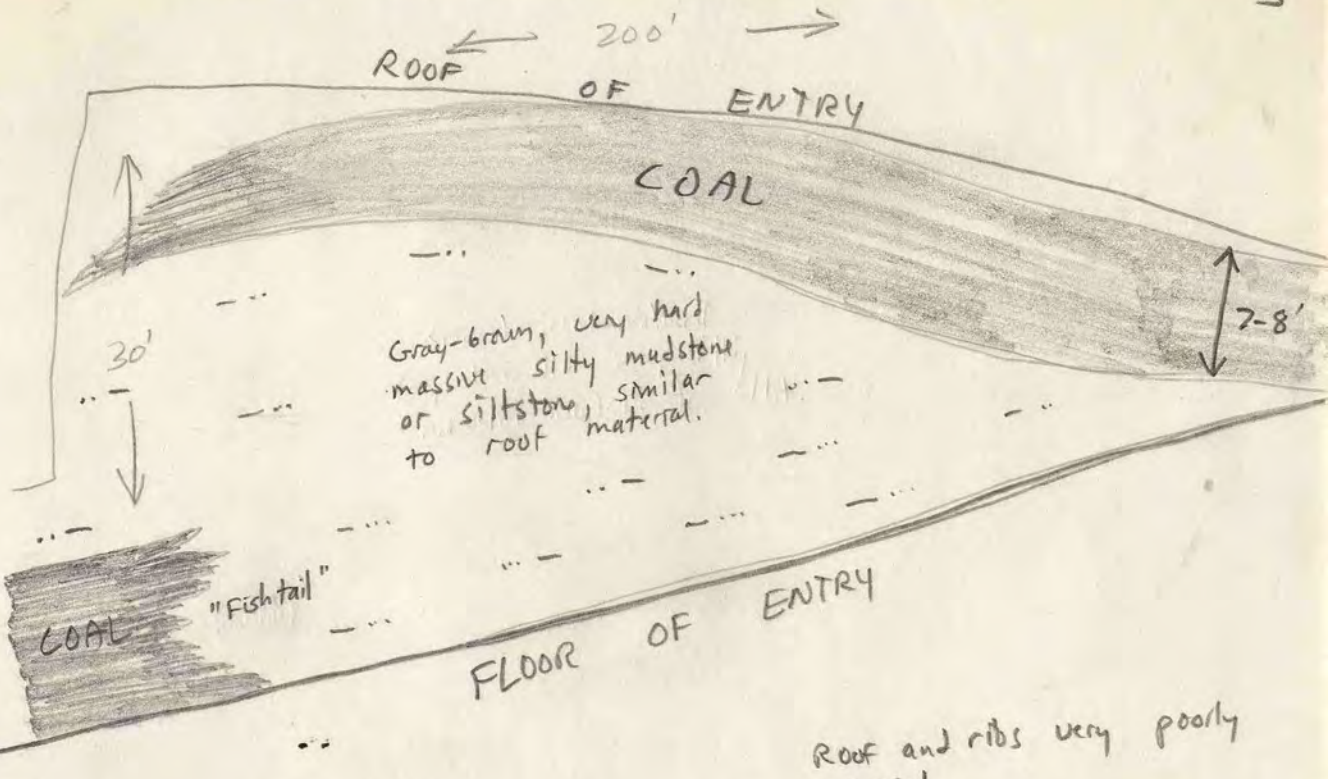 200'
ROOF OF ENTRY
COAL
7-8'
30'
Gray-brown, very hard
massive silty mudstone
or siltstone, similar
to roof material.
"Fishtail"
COAL
FLOOR OF ENTRY
Roof and ribs very poorly